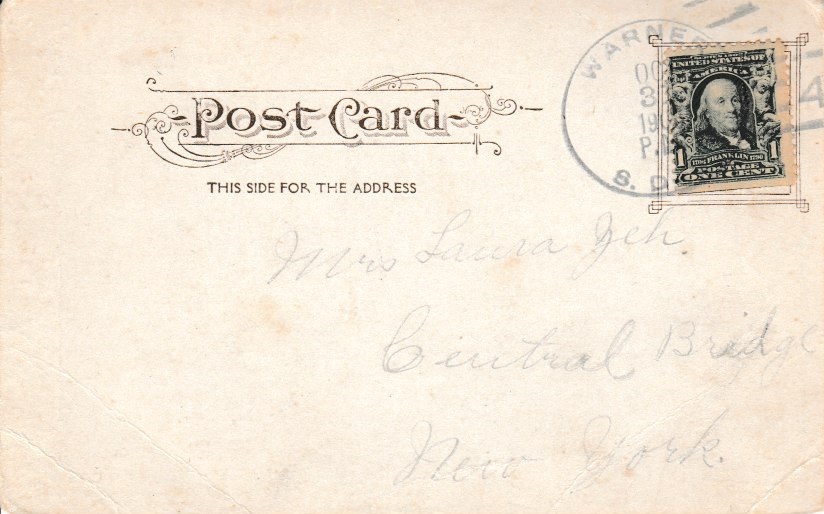 Post Card
THIS SIDE FOR THE ADDRESS
WARNER
OC
3
19
P.
S. D.
4
SERIES 1902
UNITED STATES OF
AMERICA
1
1
1706 FRANKLIN 1790
POSTAGE
ONE CENT
Mrs Laura Yeh
Central Bridge
New York.